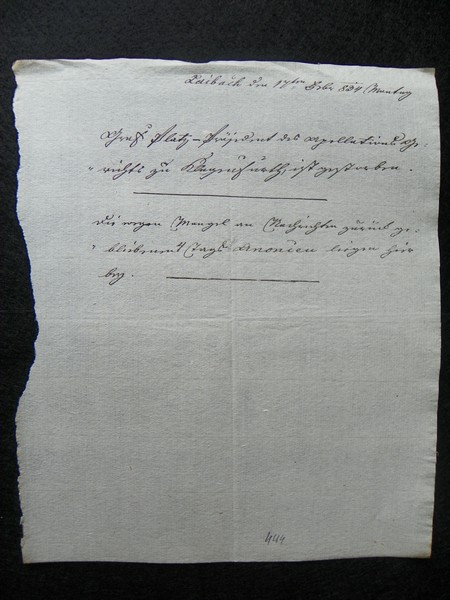 Laibach den 17ten 834 Montag
Graf Platz Präsident des Apellations Ge-
richts zu Klagenfurth, ist gestorben.
Die wegen Mangel an Nachrichten zurück ge-
bliebenen Tags liegen hier
bey.